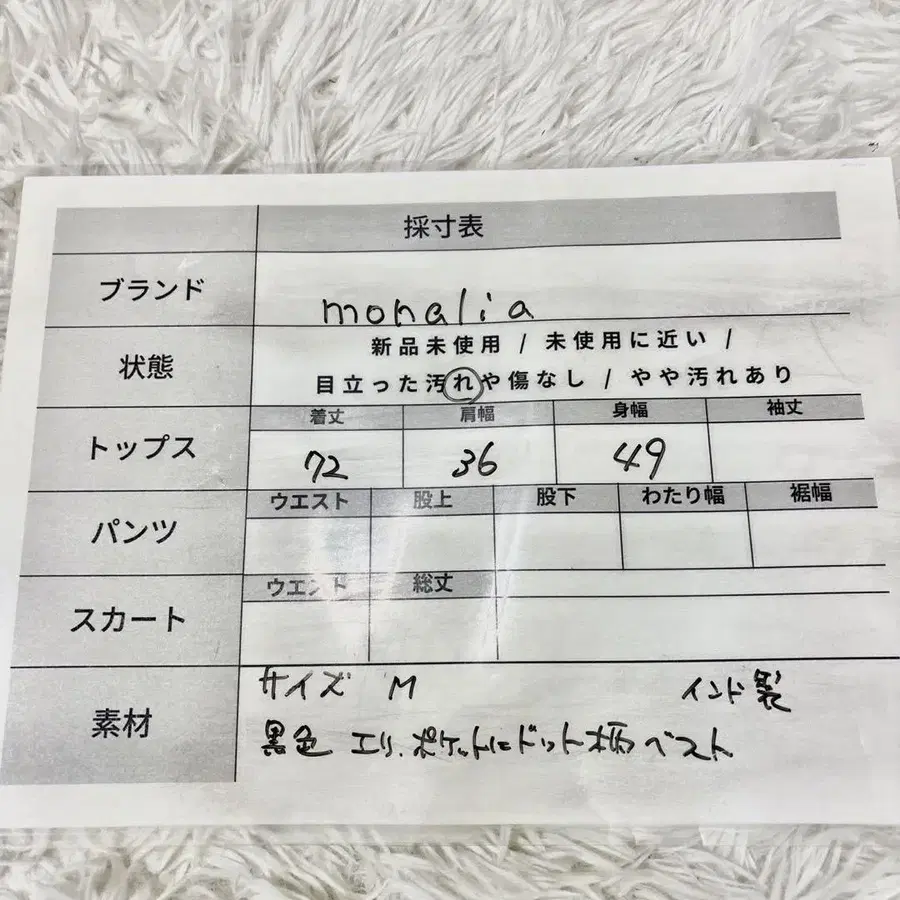 採寸表
ブランド
monalia
状態
新品未使用 / 未使用に近い /
目立った汚れや傷なし / やや汚れあり
トップス
着丈 肩幅 身幅 袖丈
72 36 49
パンツ
ウエスト 股上 股下 わたり幅 裾幅
スカート
ウエスト 総丈
素材
サイズ M インド製
黒色 エリ、ポケットにドット柄ベスト